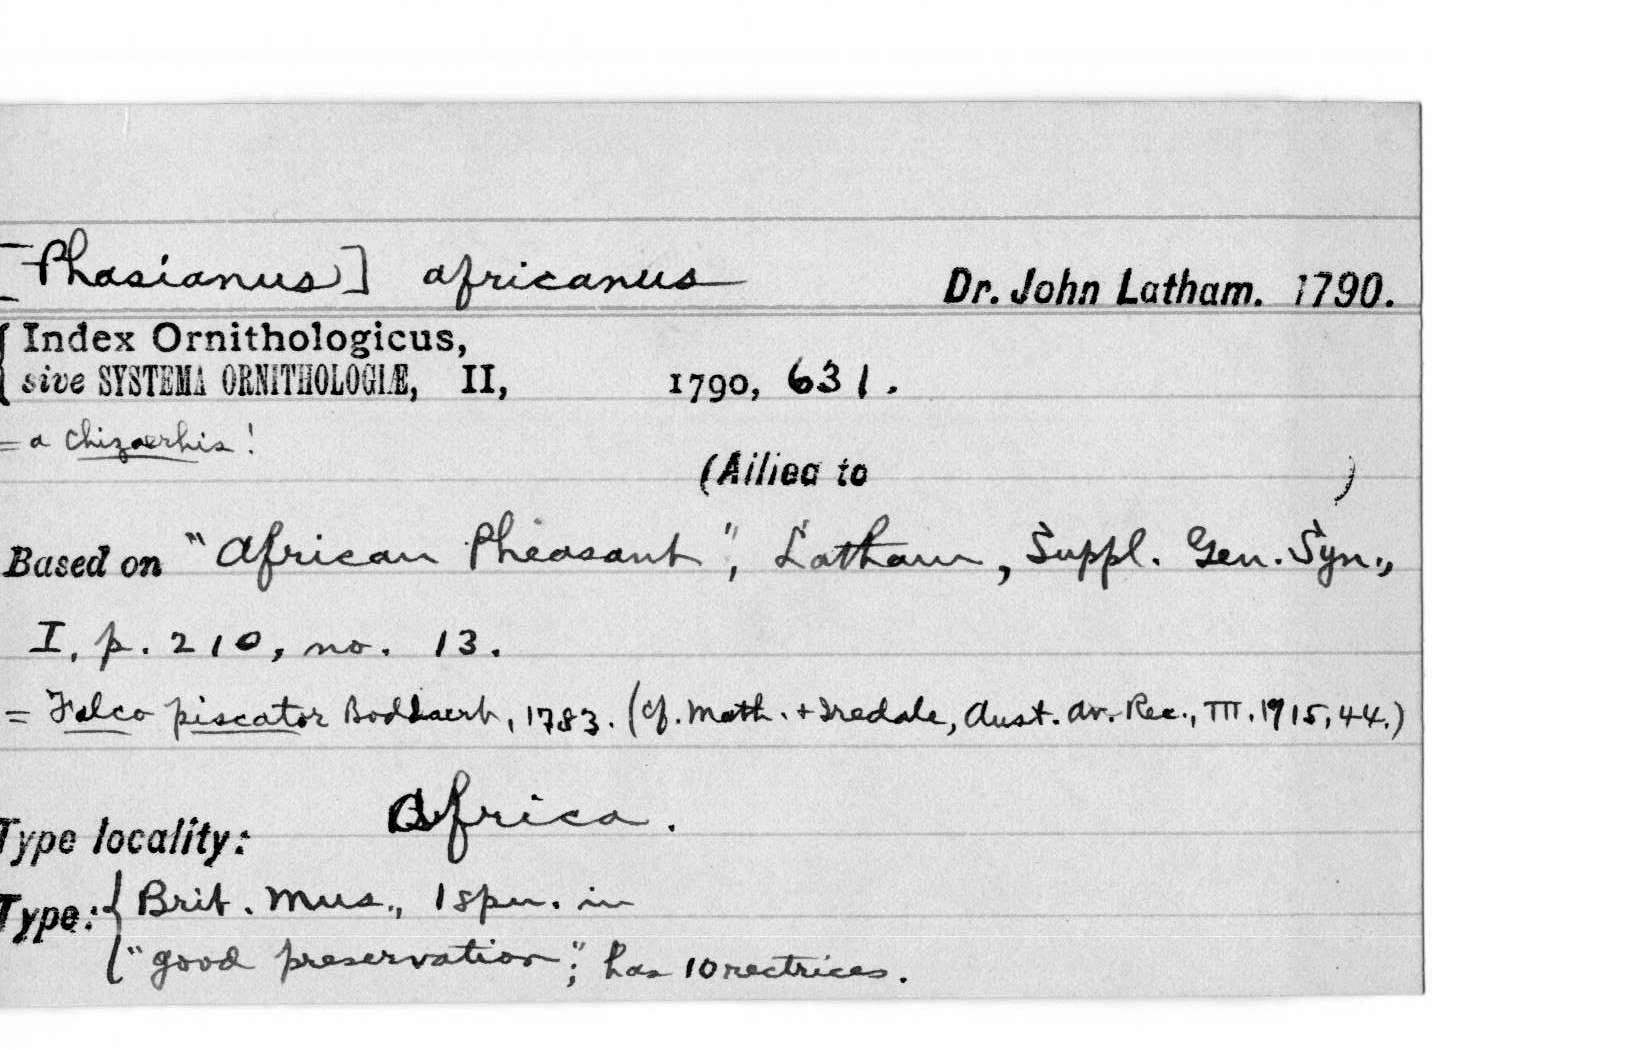 [Phasianus] africanus Dr. John Latham. 1790.
Index Ornithologicus,
sive SYSTEMA ORNITHOLOGIÆ, II, 1790, 631.
= a Chizaerhis!
(Allied to )
Based on "African Pheasant", Latham, Suppl. Gen. Syn.,
I, p. 210, no. 13.
= Falco piscator Boddaert, 1783. (cf. Math. + Iredale, Aust. Av. Rec., III. 1915, 44.)
Type locality: Africa.
Type: Brit. Mus., 1 spn. in
"good preservation"; has 10 rectrices.